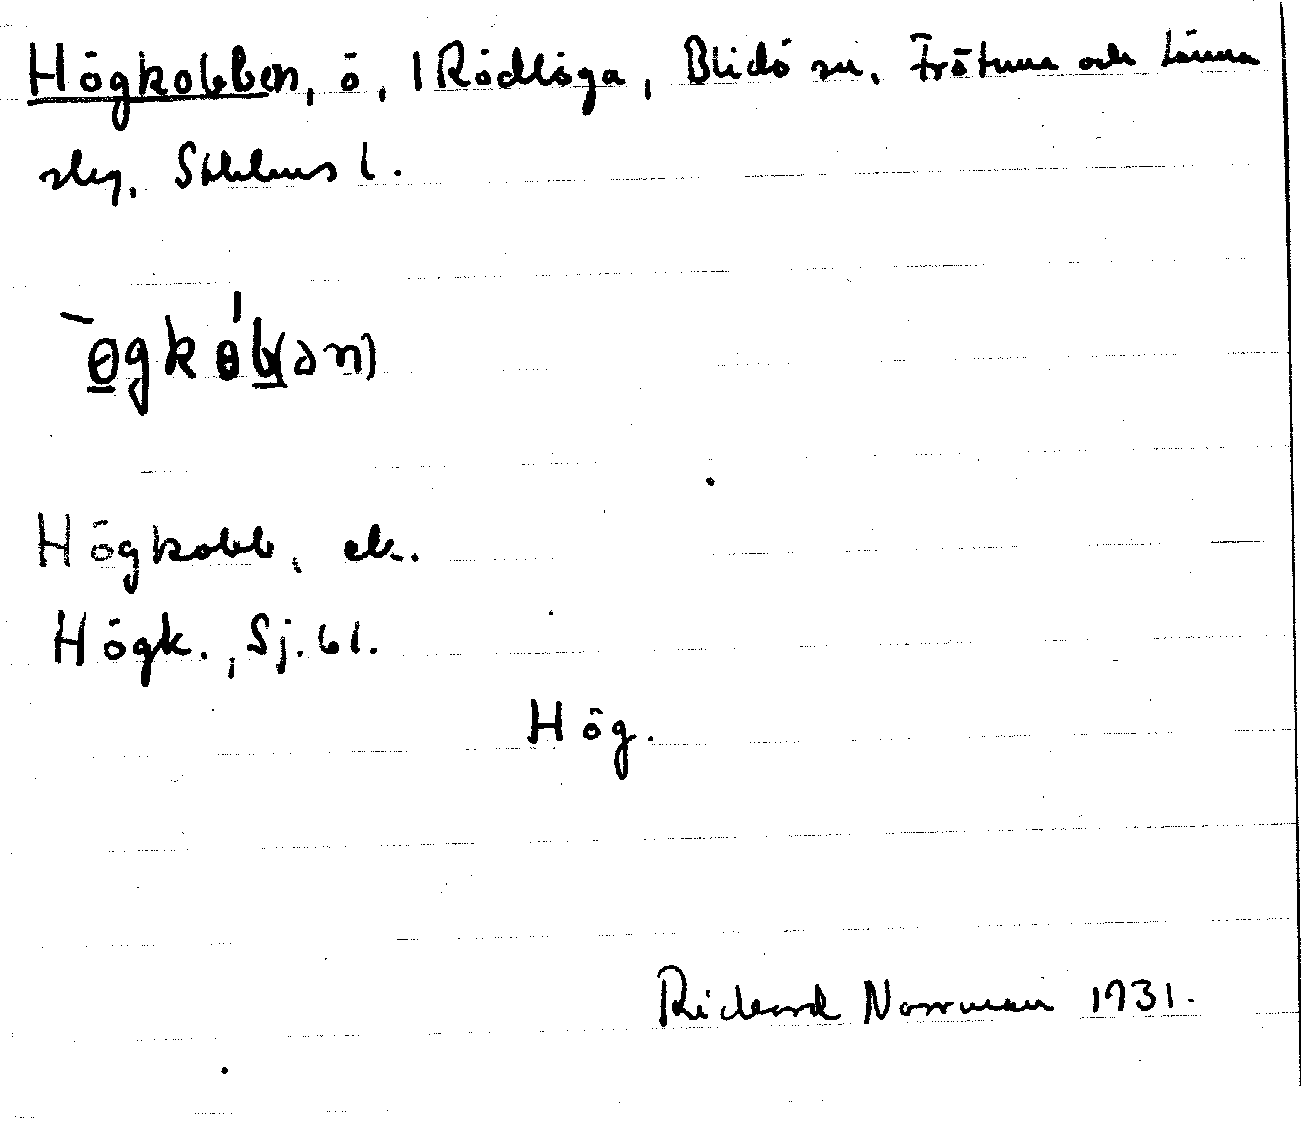 Högkobben, ö, 1 Rödlöga, Blidö sn, Frötuna och Länna
slg, Sthlms l.
ögk
Högkobb, ek.
Högk., Sj. 61.
Hög.
Rickard Norrman 1931.